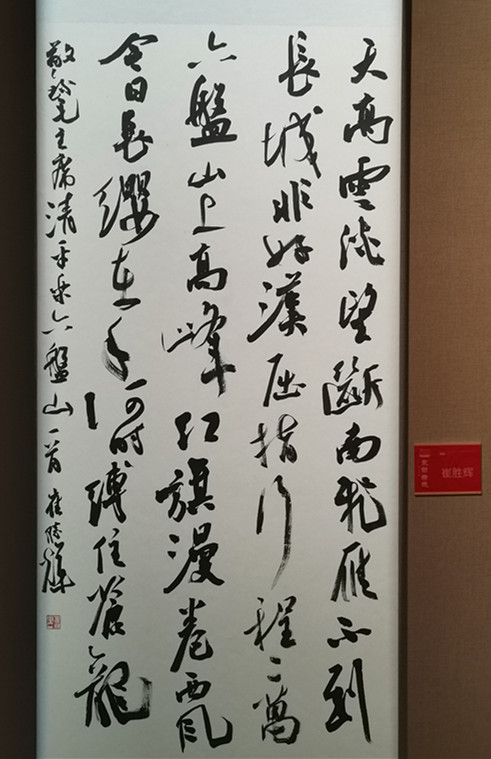 天高雲淡望斷南飛雁不到
長城非好漢屈指行程二萬
六盤山上高峰紅旗漫卷西風
今日長纓在手何時縛住蒼龍
敬錄毛主席清平樂六盤山一首 崔勝輝
崔胜辉